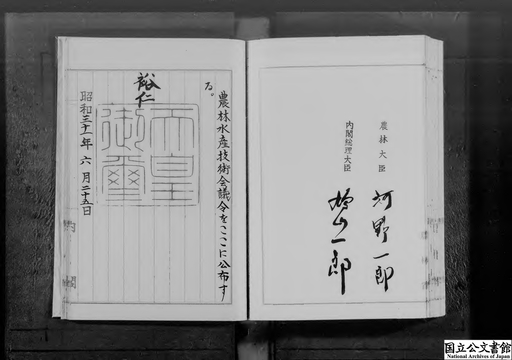 農林水産技術会議令をここに公布す
る。
裕仁
天皇
御璽
昭和三十一年六月二十五日
農林大臣
河野一郎
内閣総理大臣
鳩山一郎
国立公文書館
National Archives of Japan